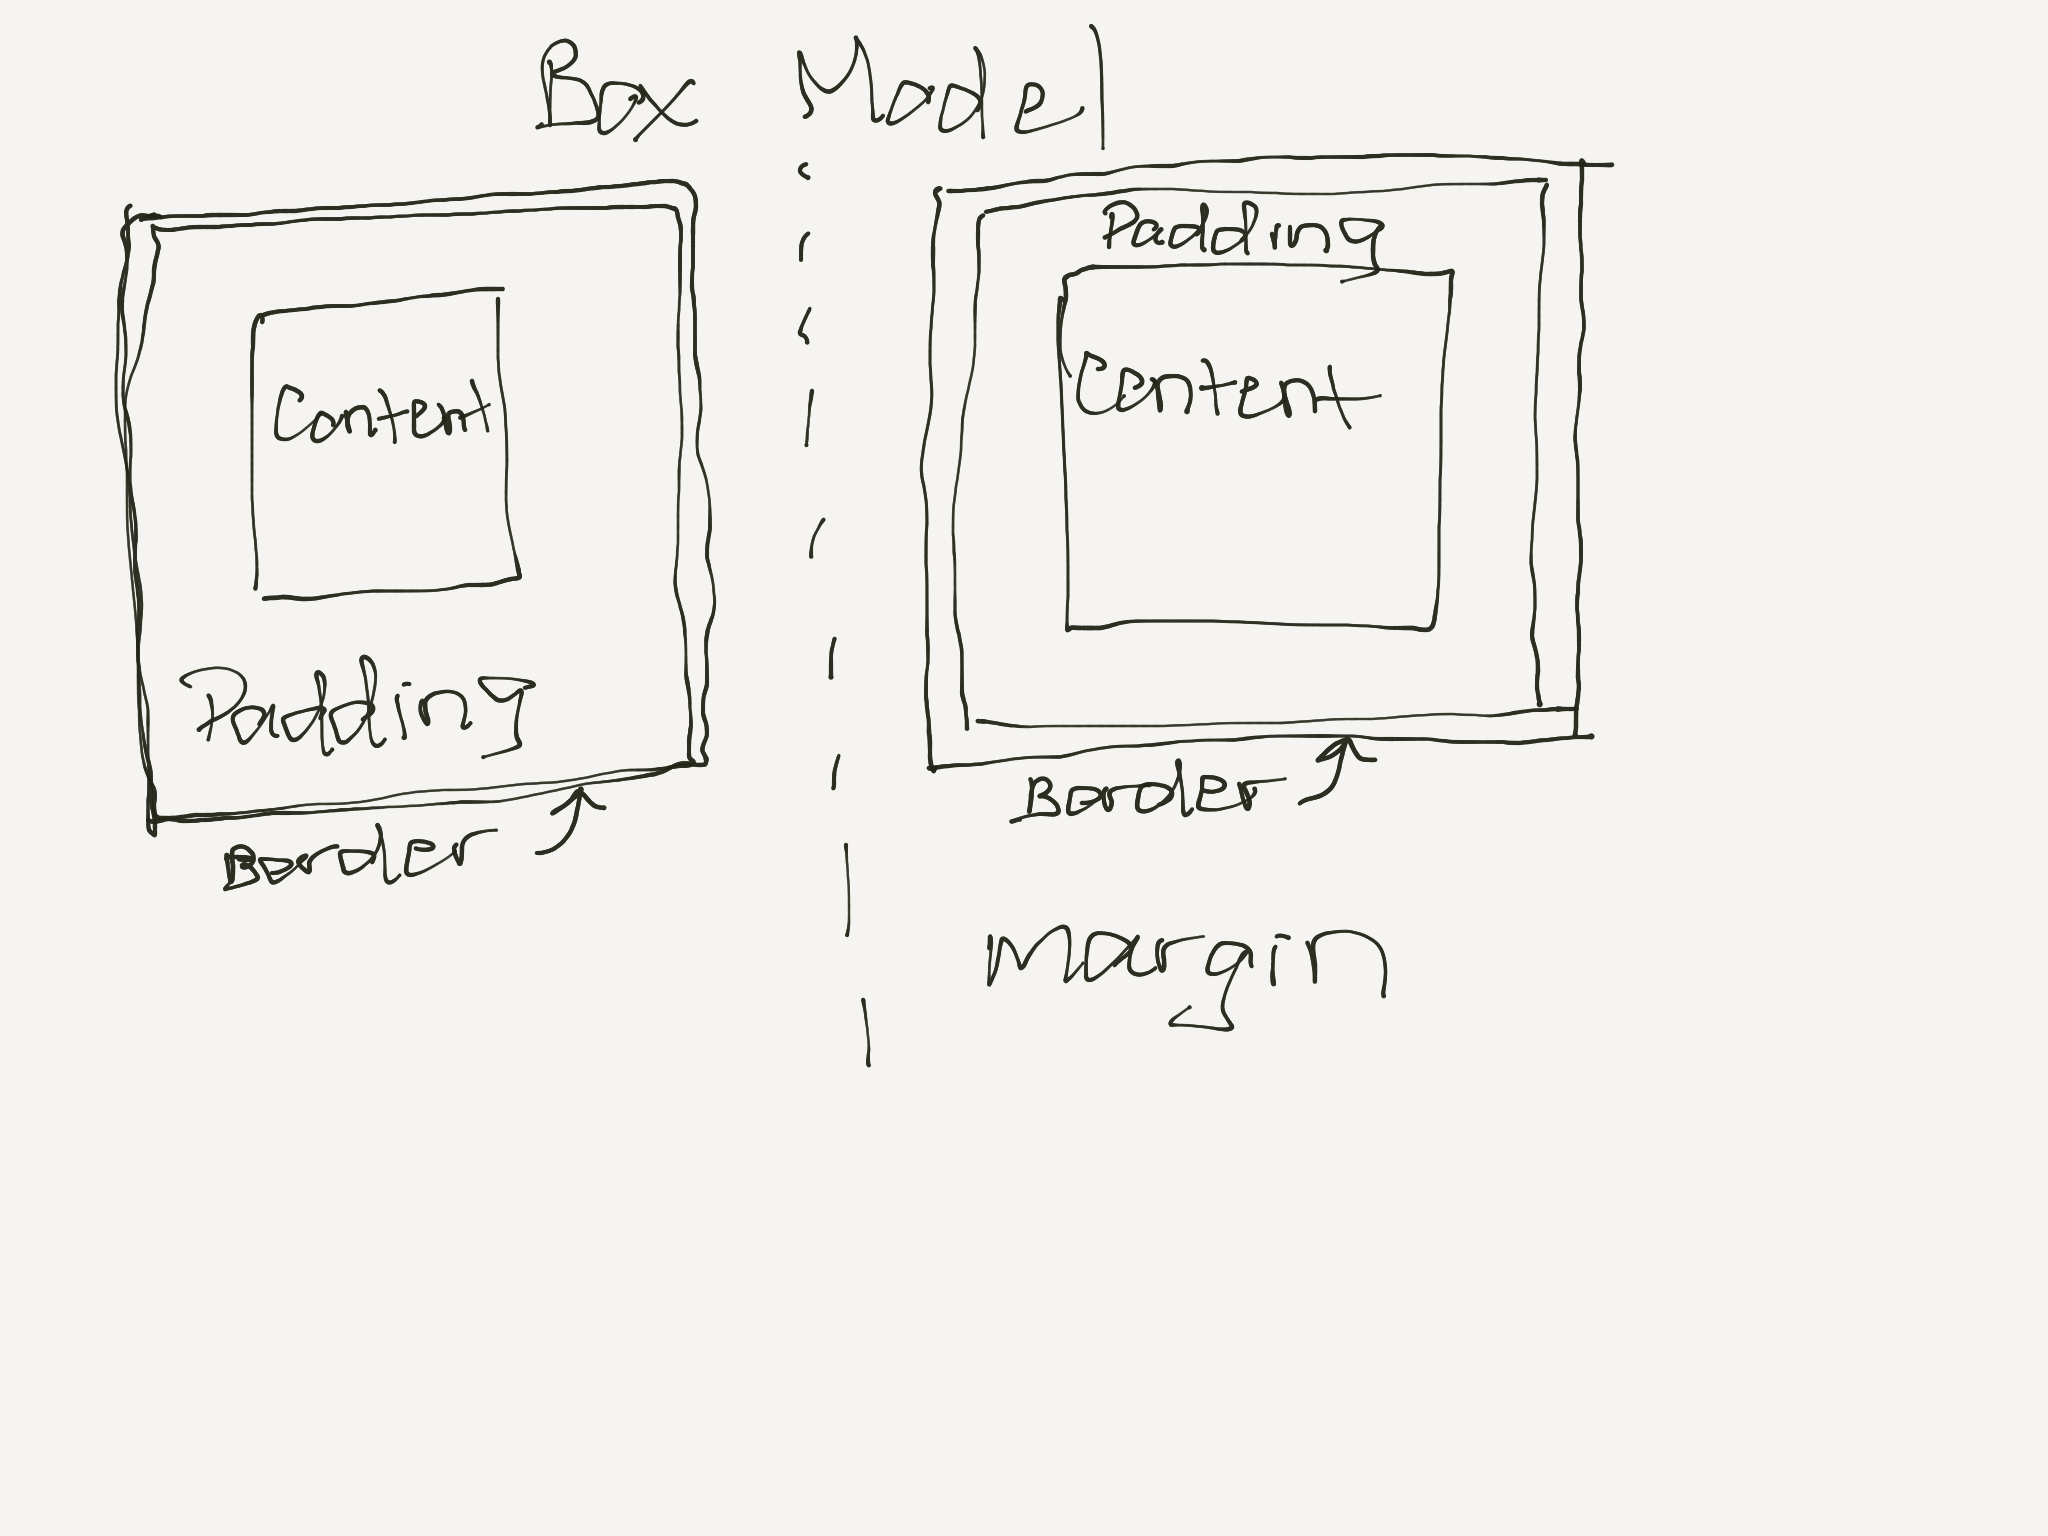 Box Model
Content
Padding
Border
Padding
Content
Border
Margin